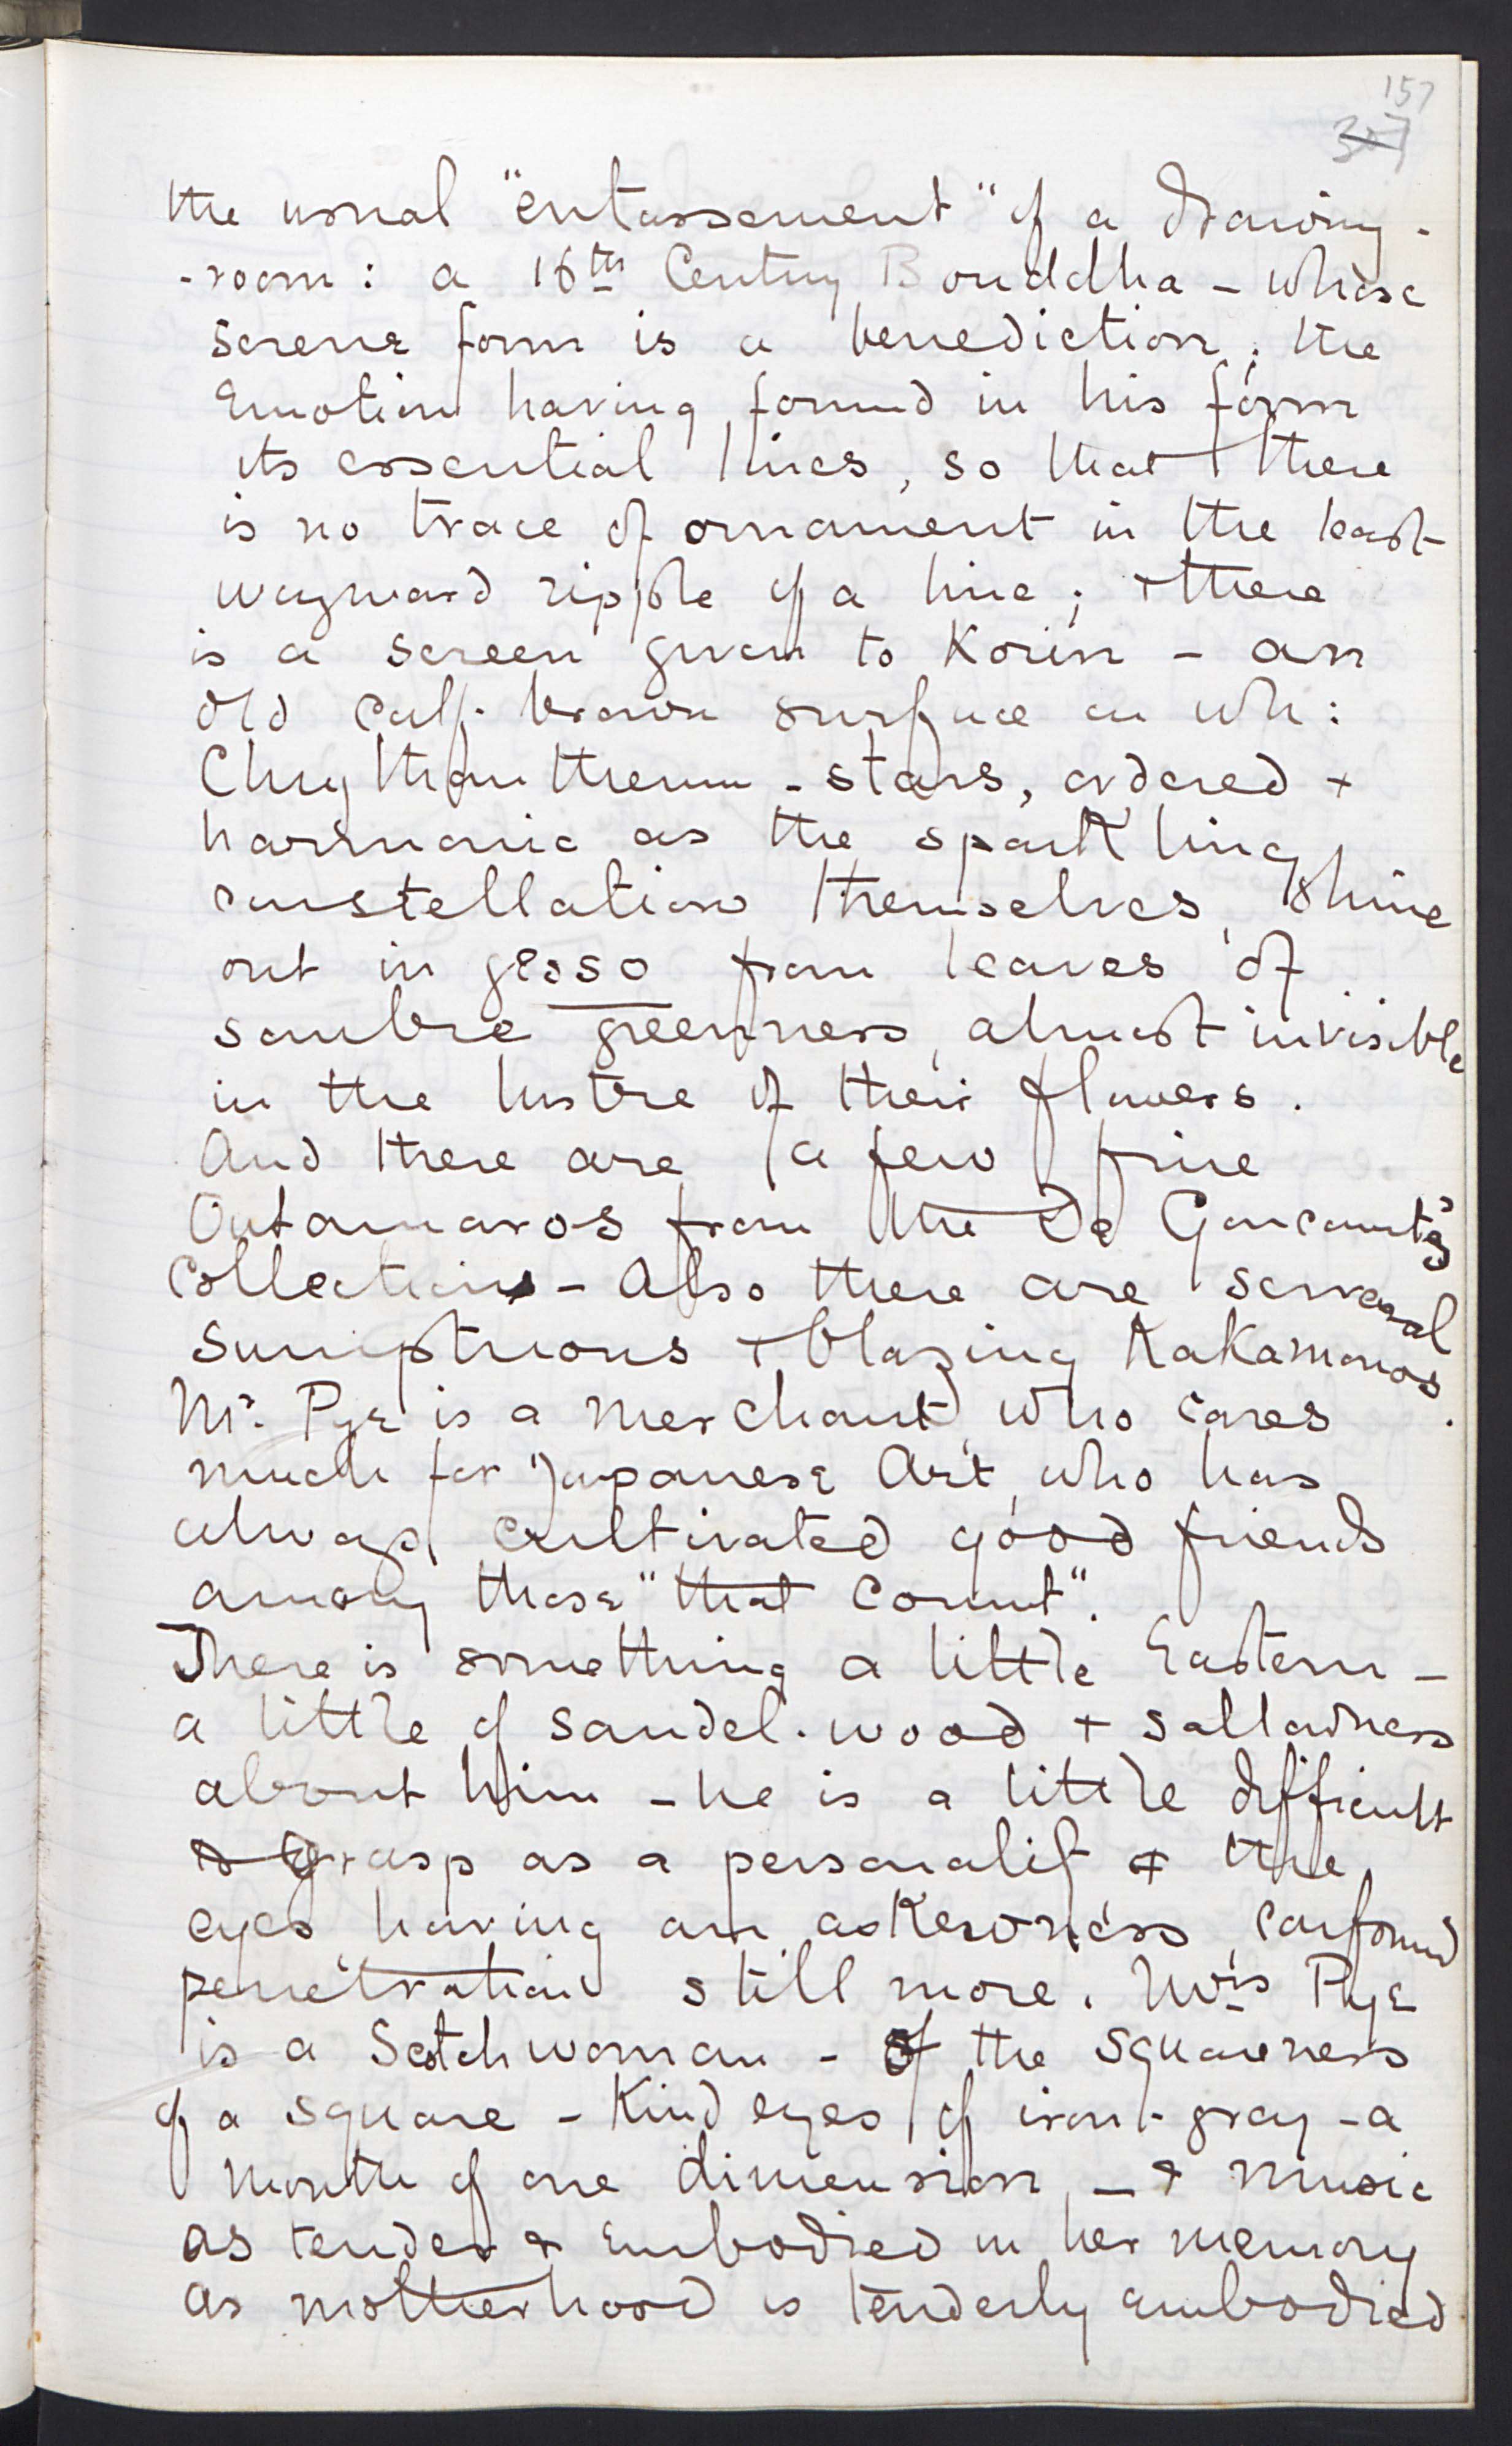 157
307
the usual "entassement" of a drawing-
-room: a 16th Century Bouddha - whose
serene form is a benediction; the
emotion having found in his form
its essential lines, so that there
is no trace of ornament in the least
wayward ripple of a line; + there
is a screen given to Korin - an
old calf-brown surface on wh:
Chrythanthemum-stars, ordered +
harmonic as the sparkling
constellations themselves, shine
out in gesso from leaves of
sombre greenness, almost invisible
in the lustre of their flowers.
And there are a few fine
Outamaros from the De Goncourt's
collections - Also there are several
sumptuous + blazing Kakamonos.
Mr. Pye is a merchant, who cares
much for Japanese Art, who has
always cultivated good friends
among those "that count".
There is something a little Eastern -
a little of sandel-wood + sallowness
about him - he is a little difficult
to grasp as a personality + the
eyes having an askewness, confound
penetration still more. Mrs Pye
is a Scotchwoman - of the squareness
of a square - Kind eyes of iron-gray - a
mouth of one dimension - & music
as tender & embodied in her memory
as motherhood is tenderly embodied